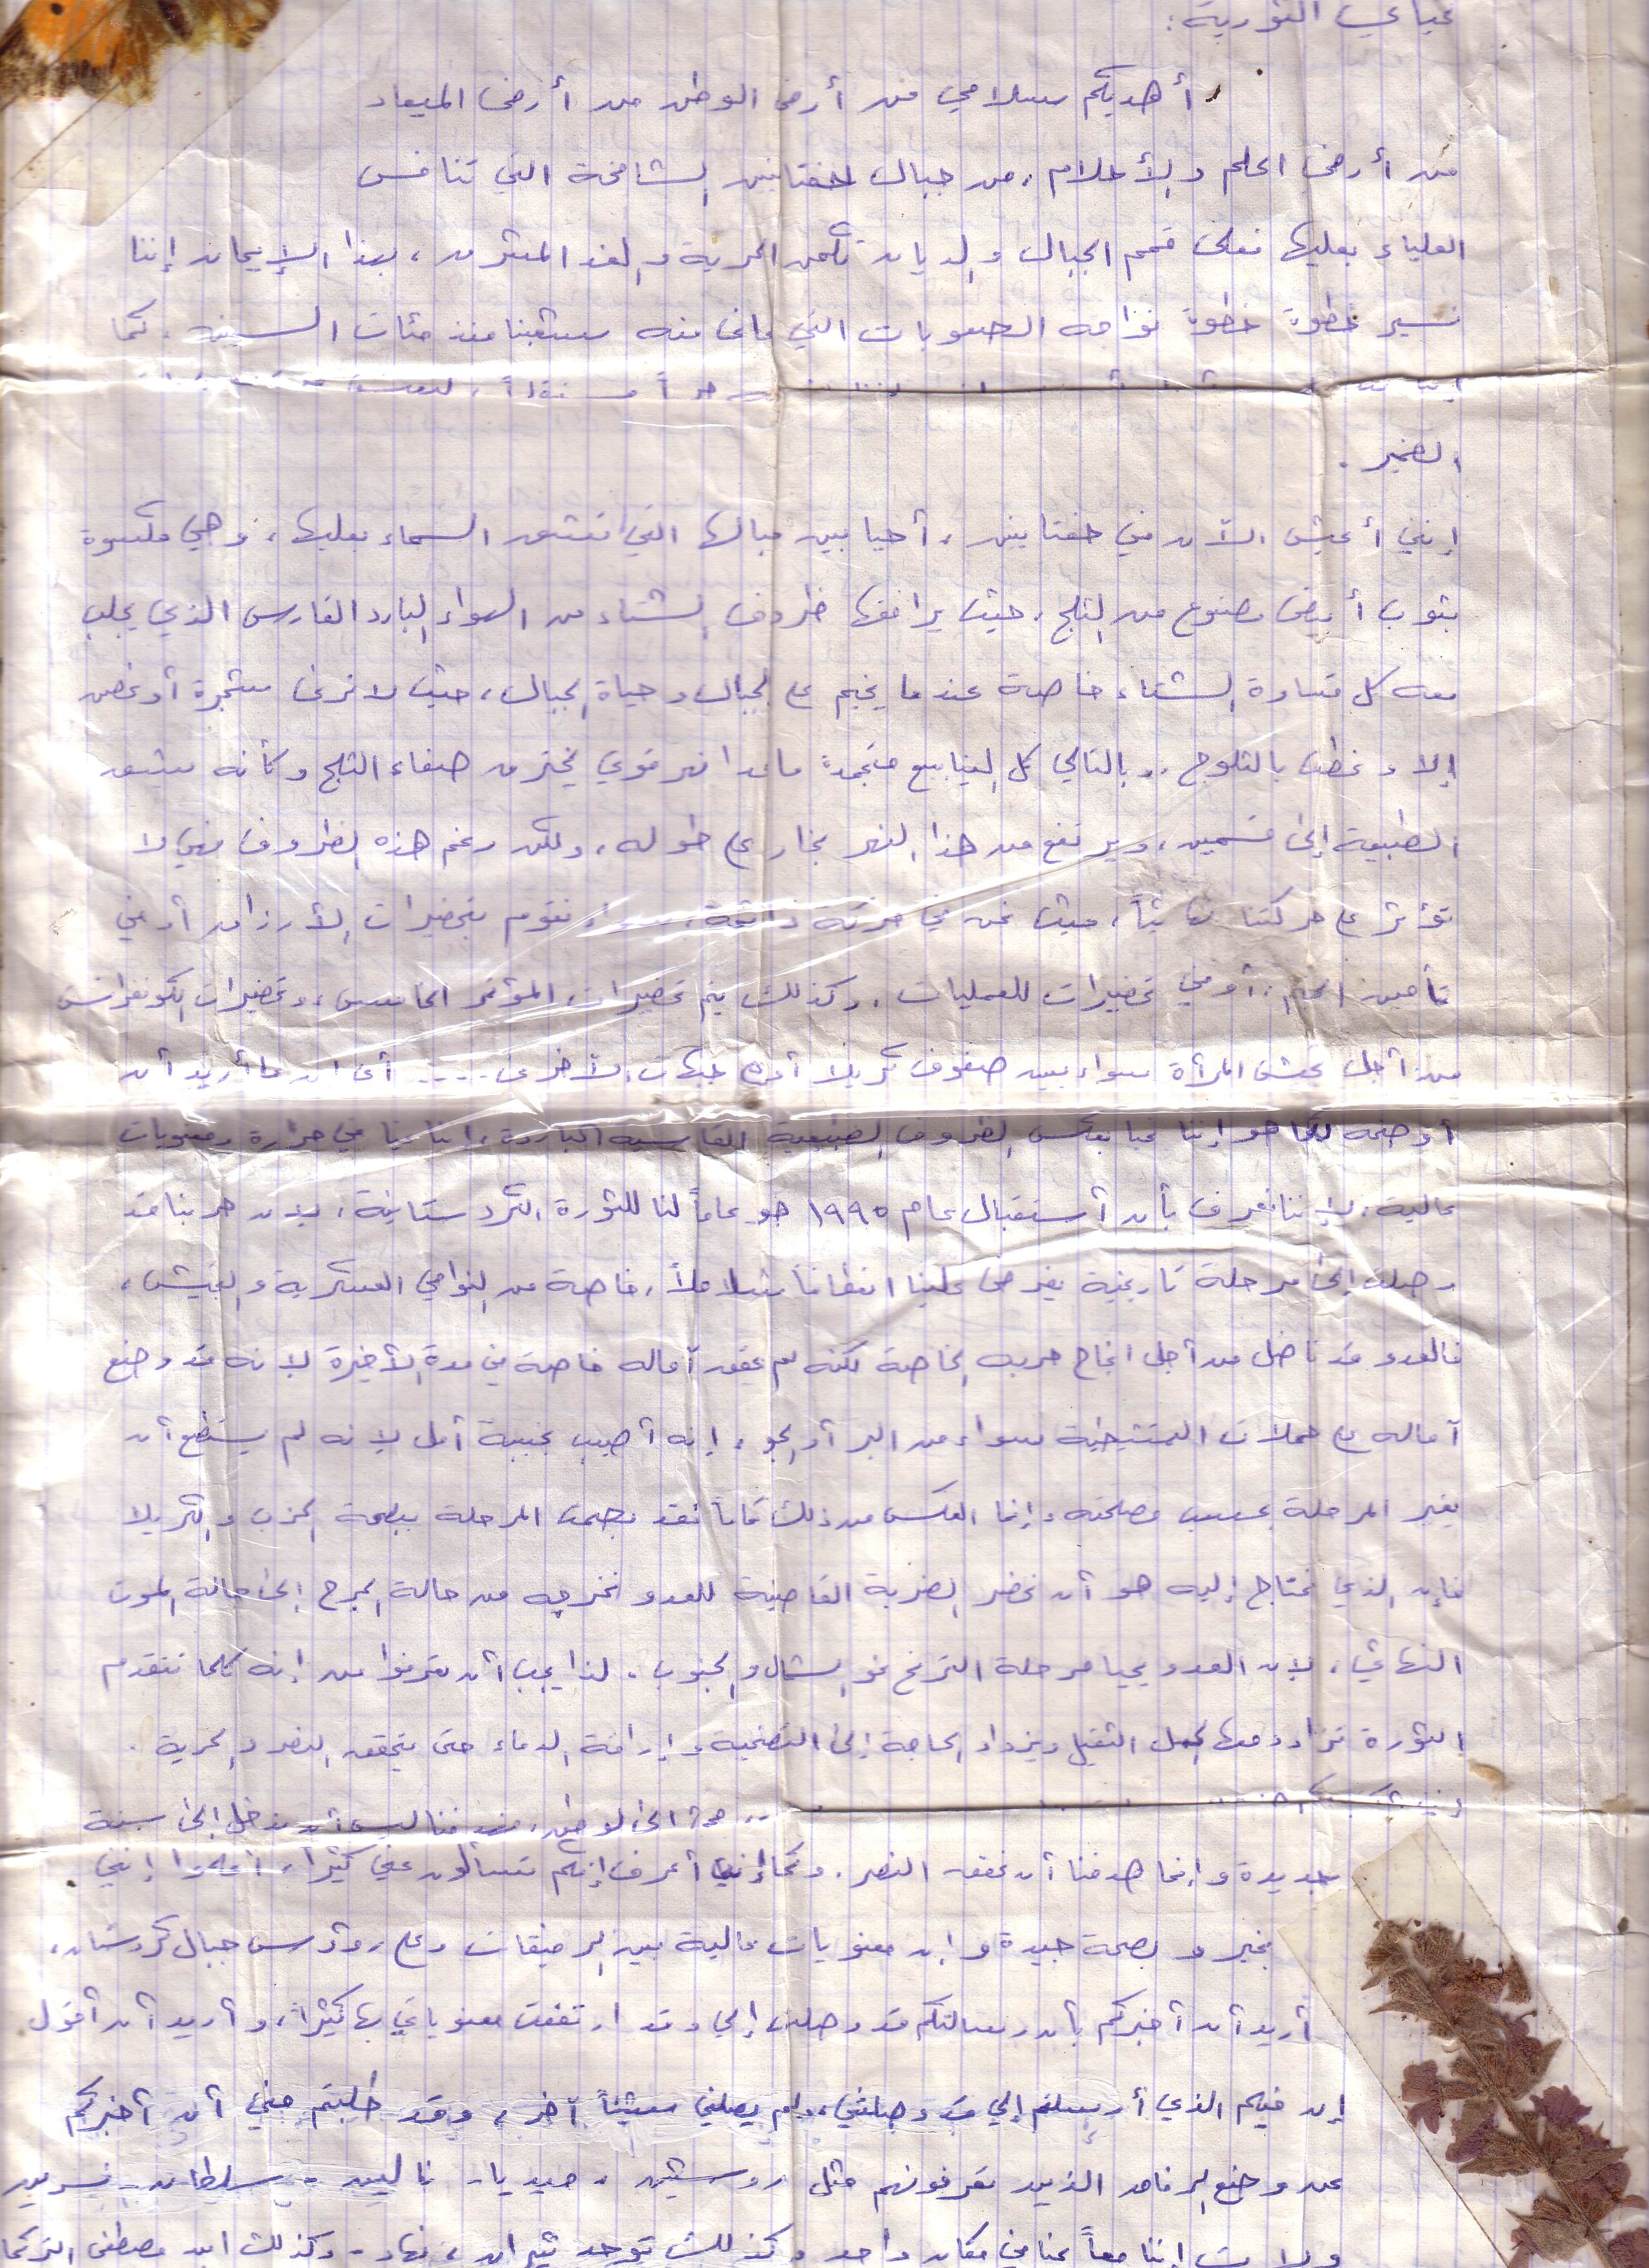 الثورية:
أهديكم سلامي من أرض الوطن من أرض الميعاد
من أرض الحلم والأحلام، من جبال حفتانين الشامخة التي تنافس
العلياء بعليها فعلى قمم الجبال والوديان تكمن الحرية والغد المشرق، بهذا الإيمان إننا
نسير خطوة خطوة نواجه الصعوبات التي عانى منه شعبنا منذ مئات السنين، كما
الصخر.
إنني أعيش الآن في حفتانين، أحيا بين جبالها التي تشق السماء بعليها، وهي مكسوة
بثوب أبيض مصنوع من الثلج، حيث يرافقها ظروف الشتاء من الهواء البارد القارس الذي يجلب
معه كل قساوة الشتاء خاصة عندما يخيم على الجبال وحياة الجبال، حيث لا نرى شجرة أو غصن
إلا وغطت بالثلوج، وبالتالي كل الينابيع متجمدة ماعدا نهر قوي يخترق صفاء الثلج وكأنه يشق
الطبيعة إلى قسمين، ويرتفع من هذا النهر بخار على طوله، ولكن رغم هذه الظروف فهي لا
تؤثر على حركتنا شيئاً، حيث نحن في حركة دائمة، سواء نقوم بتحضيرات الأرزاق أو في
تأمين أو في تحضيرات للعمليات، وكذلك يتم تحضيرات المؤتمر الخامس، وتحضيرات الكونفرانس
من أجل جيش المرأة سواء بين صفوف كريلا أو جبهات الأخرى .... أي أن ما أريد أن
أوضحه لكم هو إننا نحيا بعكس الظروف الطبيعية القاسية الباردة، إننا نحيا في حرارة ومعنويات
عالية، لإننا نعرف بأن أستقبال عام ١٩٩٥ هو عاماً لنا للثورة الكردستانية، لإن حربنا قد
وصلت إلى مرحلة تاريخية يفرض علينا خاصة من النواحي العسكرية والجيش،
فالعدو قد ناضل من أجل انجاح حربه الخاصة لكنه لم يحقق آماله خاصة في مدة الأخيرة لإنه قد وضع
آماله على حملات التمشيطية سواء من البر أو الجو، إنه أصيب بخيبة أمل لإنه لم يستطع أن
يغير المرحلة بحسب مصلحته وإنما العكس من ذلك تماماً فقد بصمت المرحلة ببصمة الحزب والكريلا
فإن الذي نحتاج إليه هو أن نحضر الضربة القاضية للعدو نخرجه من حالة الجرح إلى حالة الموت
النهائي، لإن العدو يحيا مرحلة الترنح نحو الشمال والجنوب، لذا يجب أن تعرفوا من إنه كلما تتقدم
الثورة تزداد معها الحمل الثقيل ويزداد الحاجة إلى التضحية وإراقة الدماء حتى يتحقق النصر والحرية.
إلى الوطن، هدفنا ليس أن ندخل إلى سنة
جديدة وإنما هدفنا أن نحقق النصر. وكما إنني أعرف إنكم تسألون عني كثيراً، أعلموا إنني
بخير وبصحة جيدة وإن معنويات عالية بين الرفيقات وعلى رؤوس جبال كردستان،
أريد أن أخبركم بأن رسالتكم قد وصلت إلي وقد ارتفعت معنوياتي بها كثيراً، وأريد أن أقول
إن الذي أرسلتم إلي قد وصلني، ولم يصلني شيئاً آخر، وقد طلبتم مني أن أخبركم
عن وضع الرفاق الذين تعرفونهم مثل روشين، ميديا - سلطان - نسرين
إننا معاً نحيا في مكان واحد وكذلك توجد نهاد - وكذلك ابن مصطفى